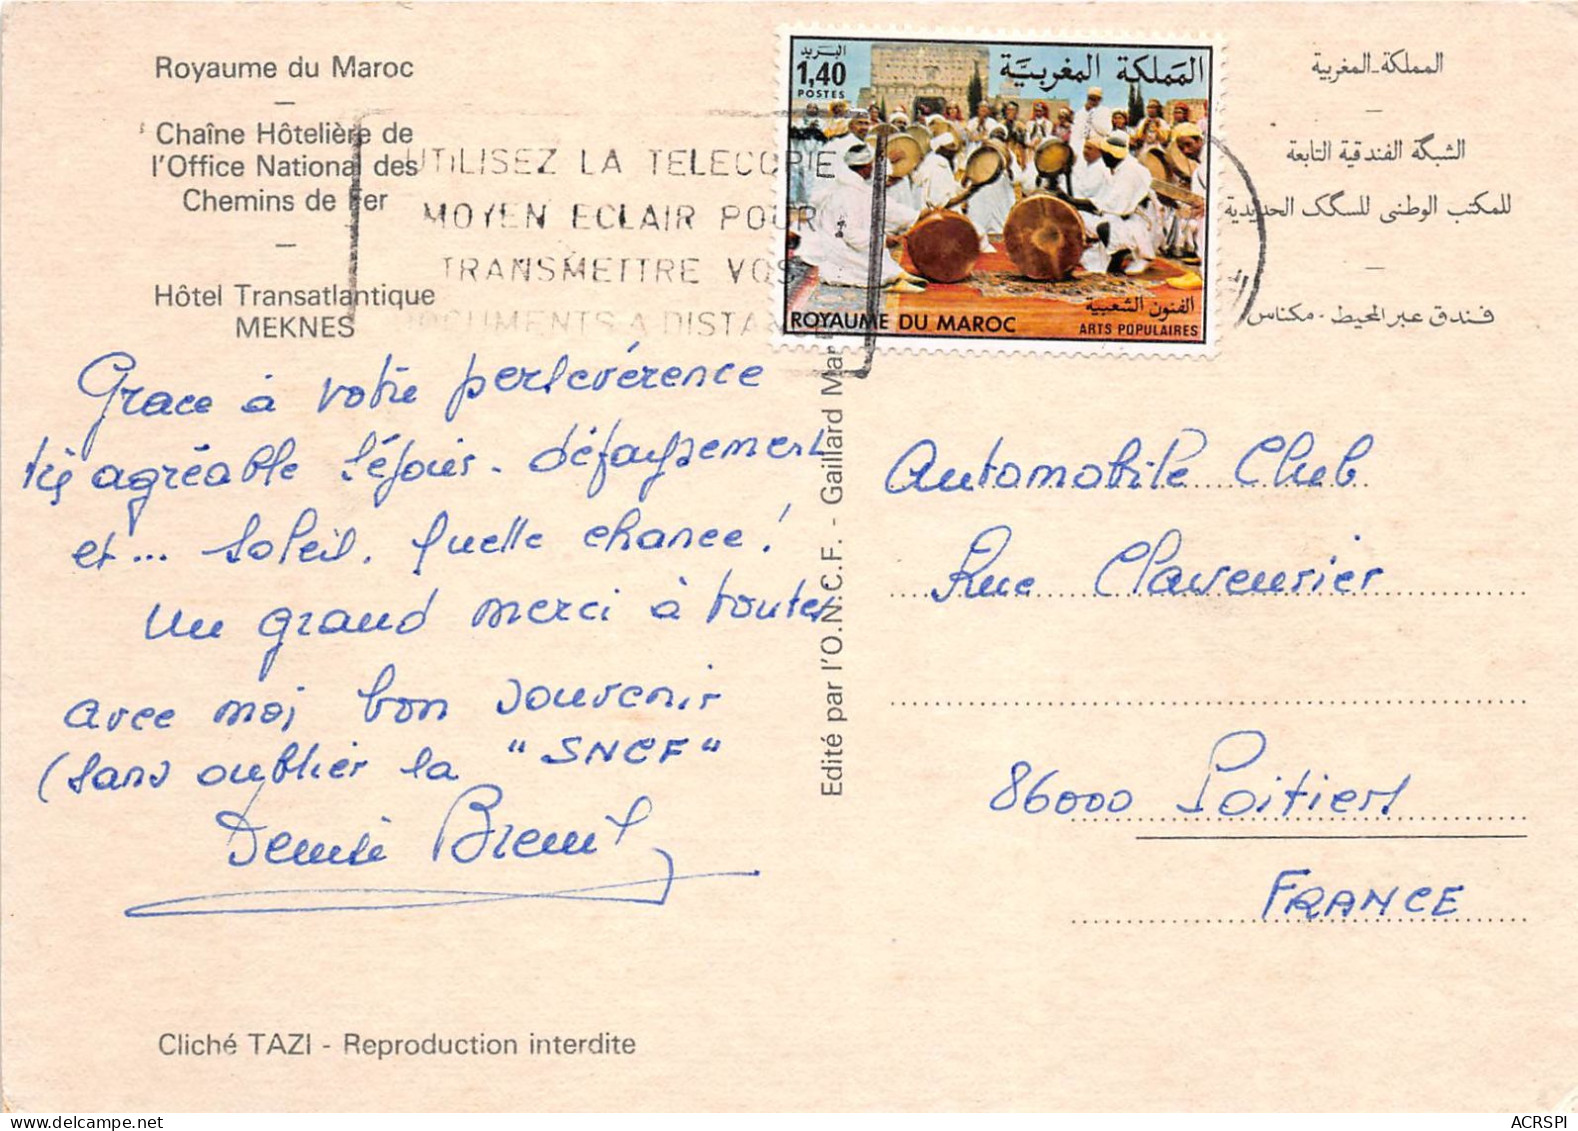 Royaume du Maroc
Chaîne Hôtelière de
l'Office National des
Chemins de Fer
Hôtel Transatlantique
MEKNES
UTILISEZ LA TELECOPIE
MOYEN ECLAIR POUR
TRANSMETTRE VOS
DOCUMENTS A DISTAN
البريد
1,40
POSTES
المملكة المغربية
الفنون الشعبية
ROYAUME DU MAROC
ARTS POPULAIRES
المملكة المغربية
الشبكة الفندقية التابعة
للمكتب الوطني للسكك الحديدية
فندق عبر المحيط - مكناس
Grace à votre persevérence
très agréable séjour. défaysement
et... soleil. quelle chance!
un grand merci à toutes
avec moi bon souvenir
(sans oublier la "SNCF"
Breuil
Edité par l'O.N.C.F. - Gaillard Mar
Automobile Club
Rue Claveurier
86000 Poitiers
FRANCE
Cliché TAZI - Reproduction interdite
ACRSPI